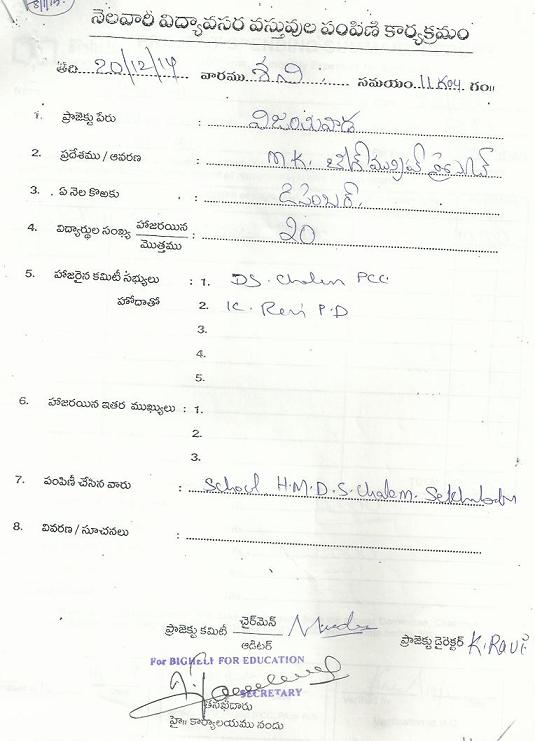 నెలవారీ విద్యావసర వస్తువుల పంపిణి కార్యక్రమం
తేది 20/12/14 వారము శని సమయం 11 గం॥
1. ప్రాజెక్టు పేరు : విజయవాడ
2. ప్రదేశము / ఆవరణ : M.K.
3. ఏ నెల కొఱకు : డిసెంబర్
4. విద్యార్థుల సంఖ్య హాజరయిన / మొత్తము : 20
5. హాజరైన కమిటీ సభ్యులు : 1. DS. Chalem PCC
హోదాతో 2. K. Ravi P.D
3.
4.
5.
6. హాజరయిన ఇతర ముఖ్యులు : 1.
2.
3.
7. పంపిణీ చేసిన వారు : School H.M. D.S. Chalem.
8. వివరణ / సూచనలు :
ప్రాజెక్టు కమిటీ చైర్‌మెన్ / ఆడిటర్ ప్రాజెక్టు డైరెక్టర్ K. Ravi
For BIGHELF FOR EDUCATION
SECRETARY
తనిఖీదారు
హై॥ కార్యాలయము నందు